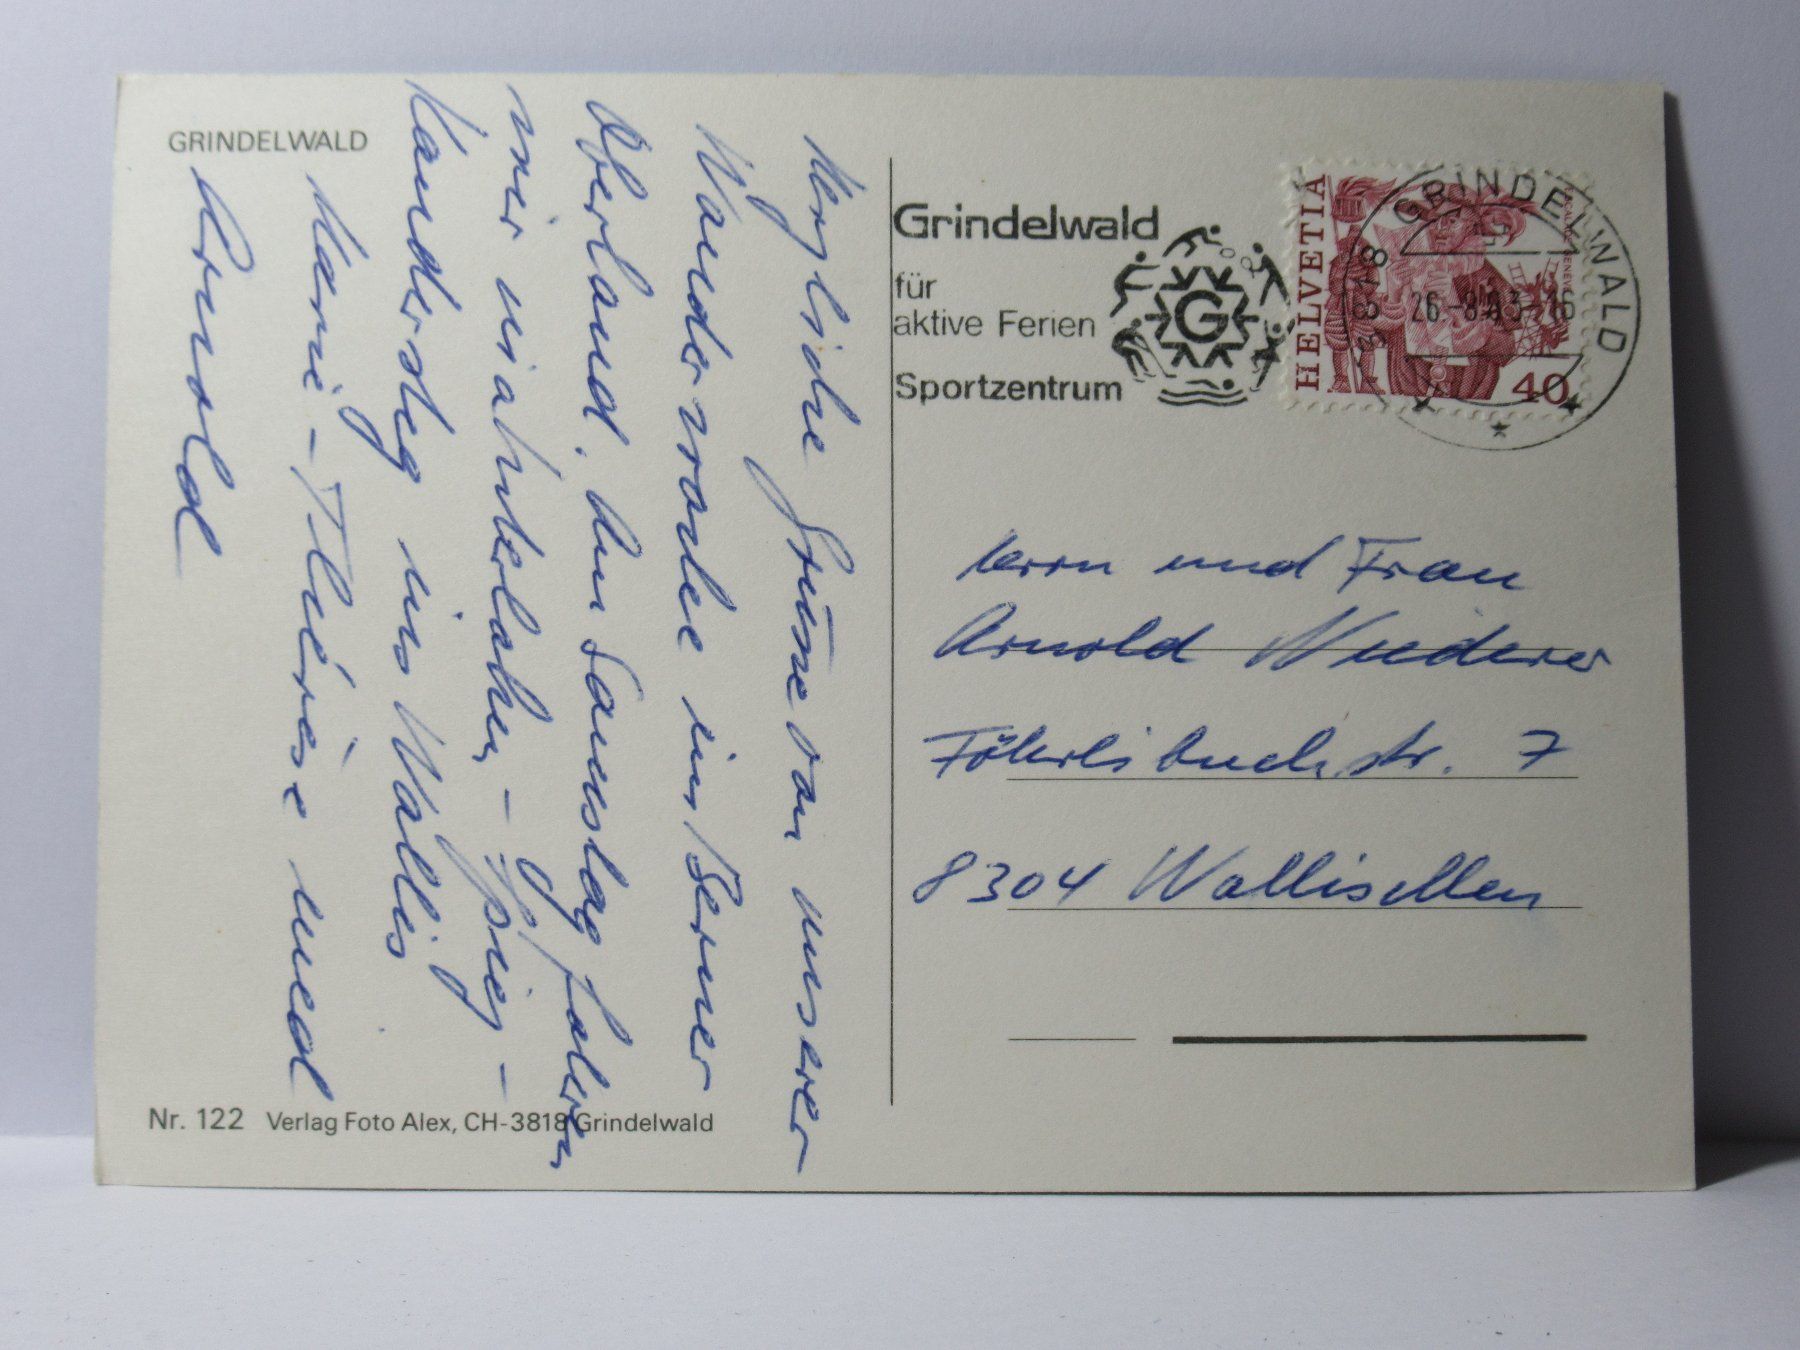 GRINDELWALD
Herzliche Grüsse von unserer
Wanderwoche im Berner
Oberland. Am Samstag fahren
wir via Interlaken -
Kandersteg ins Wallis
Marie-Thérèse und
Arnold
Nr. 122 Verlag Foto Alex, CH-3818 Grindelwald
Grindelwald
für
aktive Ferien
Sportzentrum
G
HELVETIA
40
3818 GRINDELWALD
26.-8.83-16
Herrn und Frau
Arnold Niederer
Föhrlibuckstr. 7
8304 Wallisellen